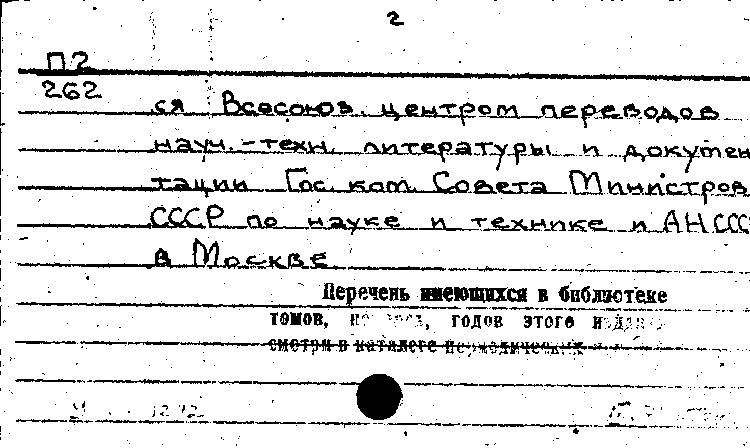 2
П2
262
ся Всесоюз. центром переводов
науч.-техн. литературы и докумен
тации Гос. ком. Совета Министров
СССР по науке и технике и АН ССС
в Москве
Перечень имеющихся в библиотеке
томов, годов этого
смотри в каталоге периодических